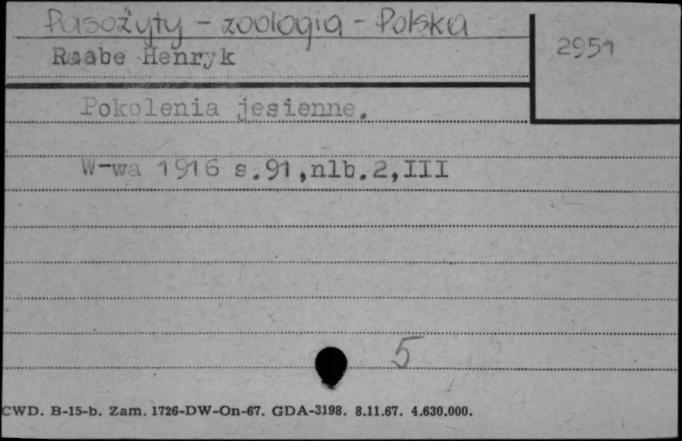 Pasożyty - zoologia - Polska
Raabe Henryk
2951
Pokolenia jesienne.
W-wa 1916 s.91,nlb.2,III
5
CWD. B-15-b. Zam. 1726-DW-On-67. GDA-3198. 8.11.67. 4.630.000.